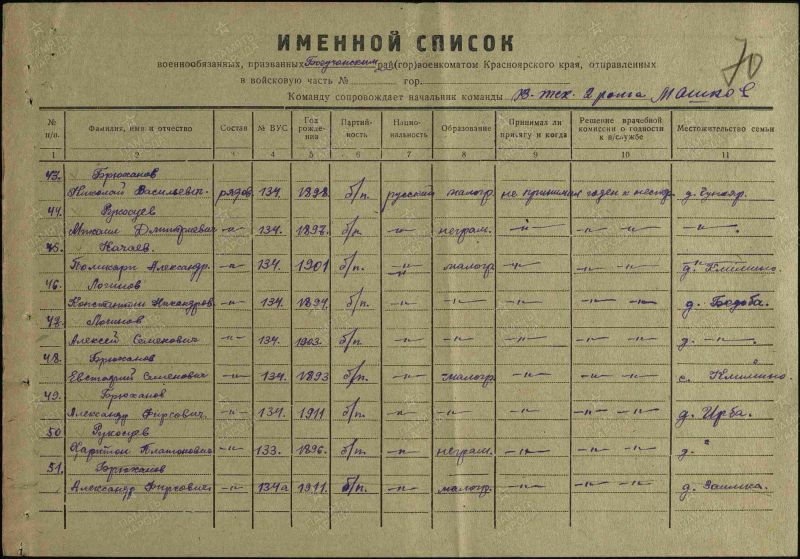 70
ИМЕННОЙ СПИСОК
военнообязанных, призванных Богучанским рай(гор)военкоматом Красноярского края, отправленных
в войсковую часть № гор.
Команду сопровождает начальник команды В-тех- 2 ранга Машков
№ п/п. Фамилия, имя и отчество Состав № ВУС Год рождения Партийность Национальность Образование Принимал ли присягу и когда Решение врачебной комиссии о годности к в/службе Местожительство семьи
1 2 3 4 5 6 7 8 9 10 11
43. Брюханов
Николай Васильевич рядов. 134. 1898 б/п. русский малогр. не принимал годен к нестр. д.
44. Рукосуев
Михаил Дмитриевич -"- 134. 1897 б/п. -"- неграм. -"- -"- -"- -"-
45. Качаев
Поликарп Александр. -"- 134. 1901 б/п. -"- малогр. -"- -"- -"- д. Климино.
46. Логинов
Константин Никандров. -"- 134. 1894 б/п. -"- -"- -"- -"- -"- д. Бодоба.
47. Логинов
Алексей Семенович -"- 134. 1903. б/п. -"- -"- -"- -"- -"- д. -"-
48. Брюханов
Евстафий Семенович -"- 134. 1893 б/п. -"- малогр. -"- -"- -"- с. Климино.
49. Брюханов
Александр Фирсович. -"- 134. 1911 б/п. -"- -"- -"- -"- -"- д. Ирба.
50 Рукосуев
Харитон Платонович -"- 133. 1896. б/п. -"- неграм. -"- -"- -"- д. "
51. Брюханов
Александр Фирсович -"- 134а 1911. б/п. -"- малогр. -"- -"- -"- д. Заимка.